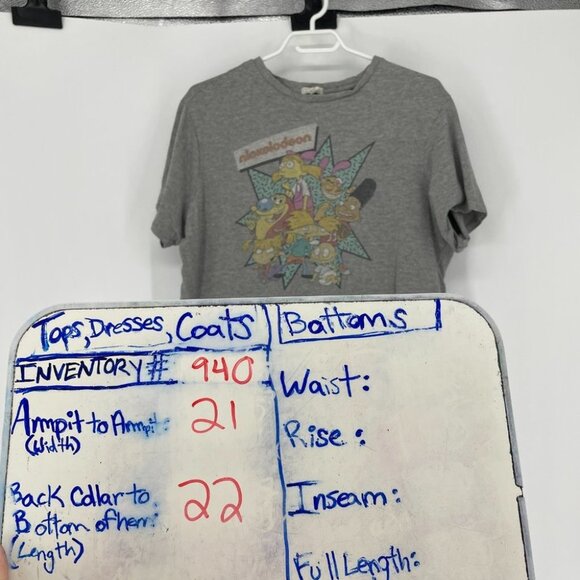 nickelodeon
Tops, Dresses, Coats
INVENTORY # 940
Armpit to Armpit: 21
(Width)
Back Collar to
Bottom of hem: 22
(Length)
Bottoms
Waist:
Rise:
Inseam:
Full Length: